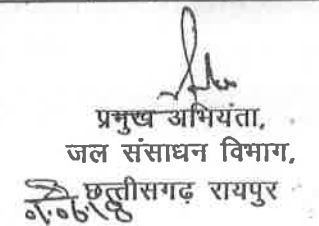 प्रमुख अभियंता,
जल संसाधन विभाग,
छत्तीसगढ़ रायपुर